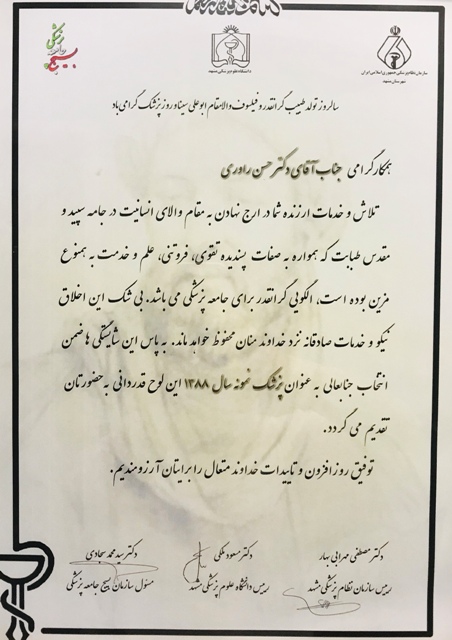 بسیج جامعه پزشکی
دانشگاه علوم پزشکی مشهد
سازمان نظام پزشکی جمهوری اسلامی ایران
شهرستان مشهد
سالروز تولد طبیب گرانقدر و فیلسوف والامقام ابوعلی سینا و روز پزشک گرامی باد
همکار گرامی جناب آقای دکتر حسن راوری
تلاش و خدمات ارزنده شما در ارج نهادن به مقام والای انسانیت در جامه سپید و
مقدس طبابت که همواره به صفات پسندیده تقوی، فروتنی، علم و خدمت به همنوع
مزین بوده است، الگویی گرانقدر برای جامعه پزشکی می باشد. بی شک این اخلاق
نیکو و خدمات صادقانه نزد خداوند منان محفوظ خواهد ماند. به پاس این شایستگی ها ضمن
انتخاب جنابعالی به عنوان پزشک نمونه سال ۱۳۸۸ این لوح قدردانی به حضورتان
تقدیم می گردد.
توفیق روز افزون و تاییدات خداوند متعال را برایتان آرزومندیم.
دکتر مصطفی مهرابی بهار
رییس سازمان نظام پزشکی مشهد
دکتر مسعود ملکی
رییس دانشگاه علوم پزشکی مشهد
دکتر سید محمد سجادی
مسئول سازمان بسیج جامعه پزشکی